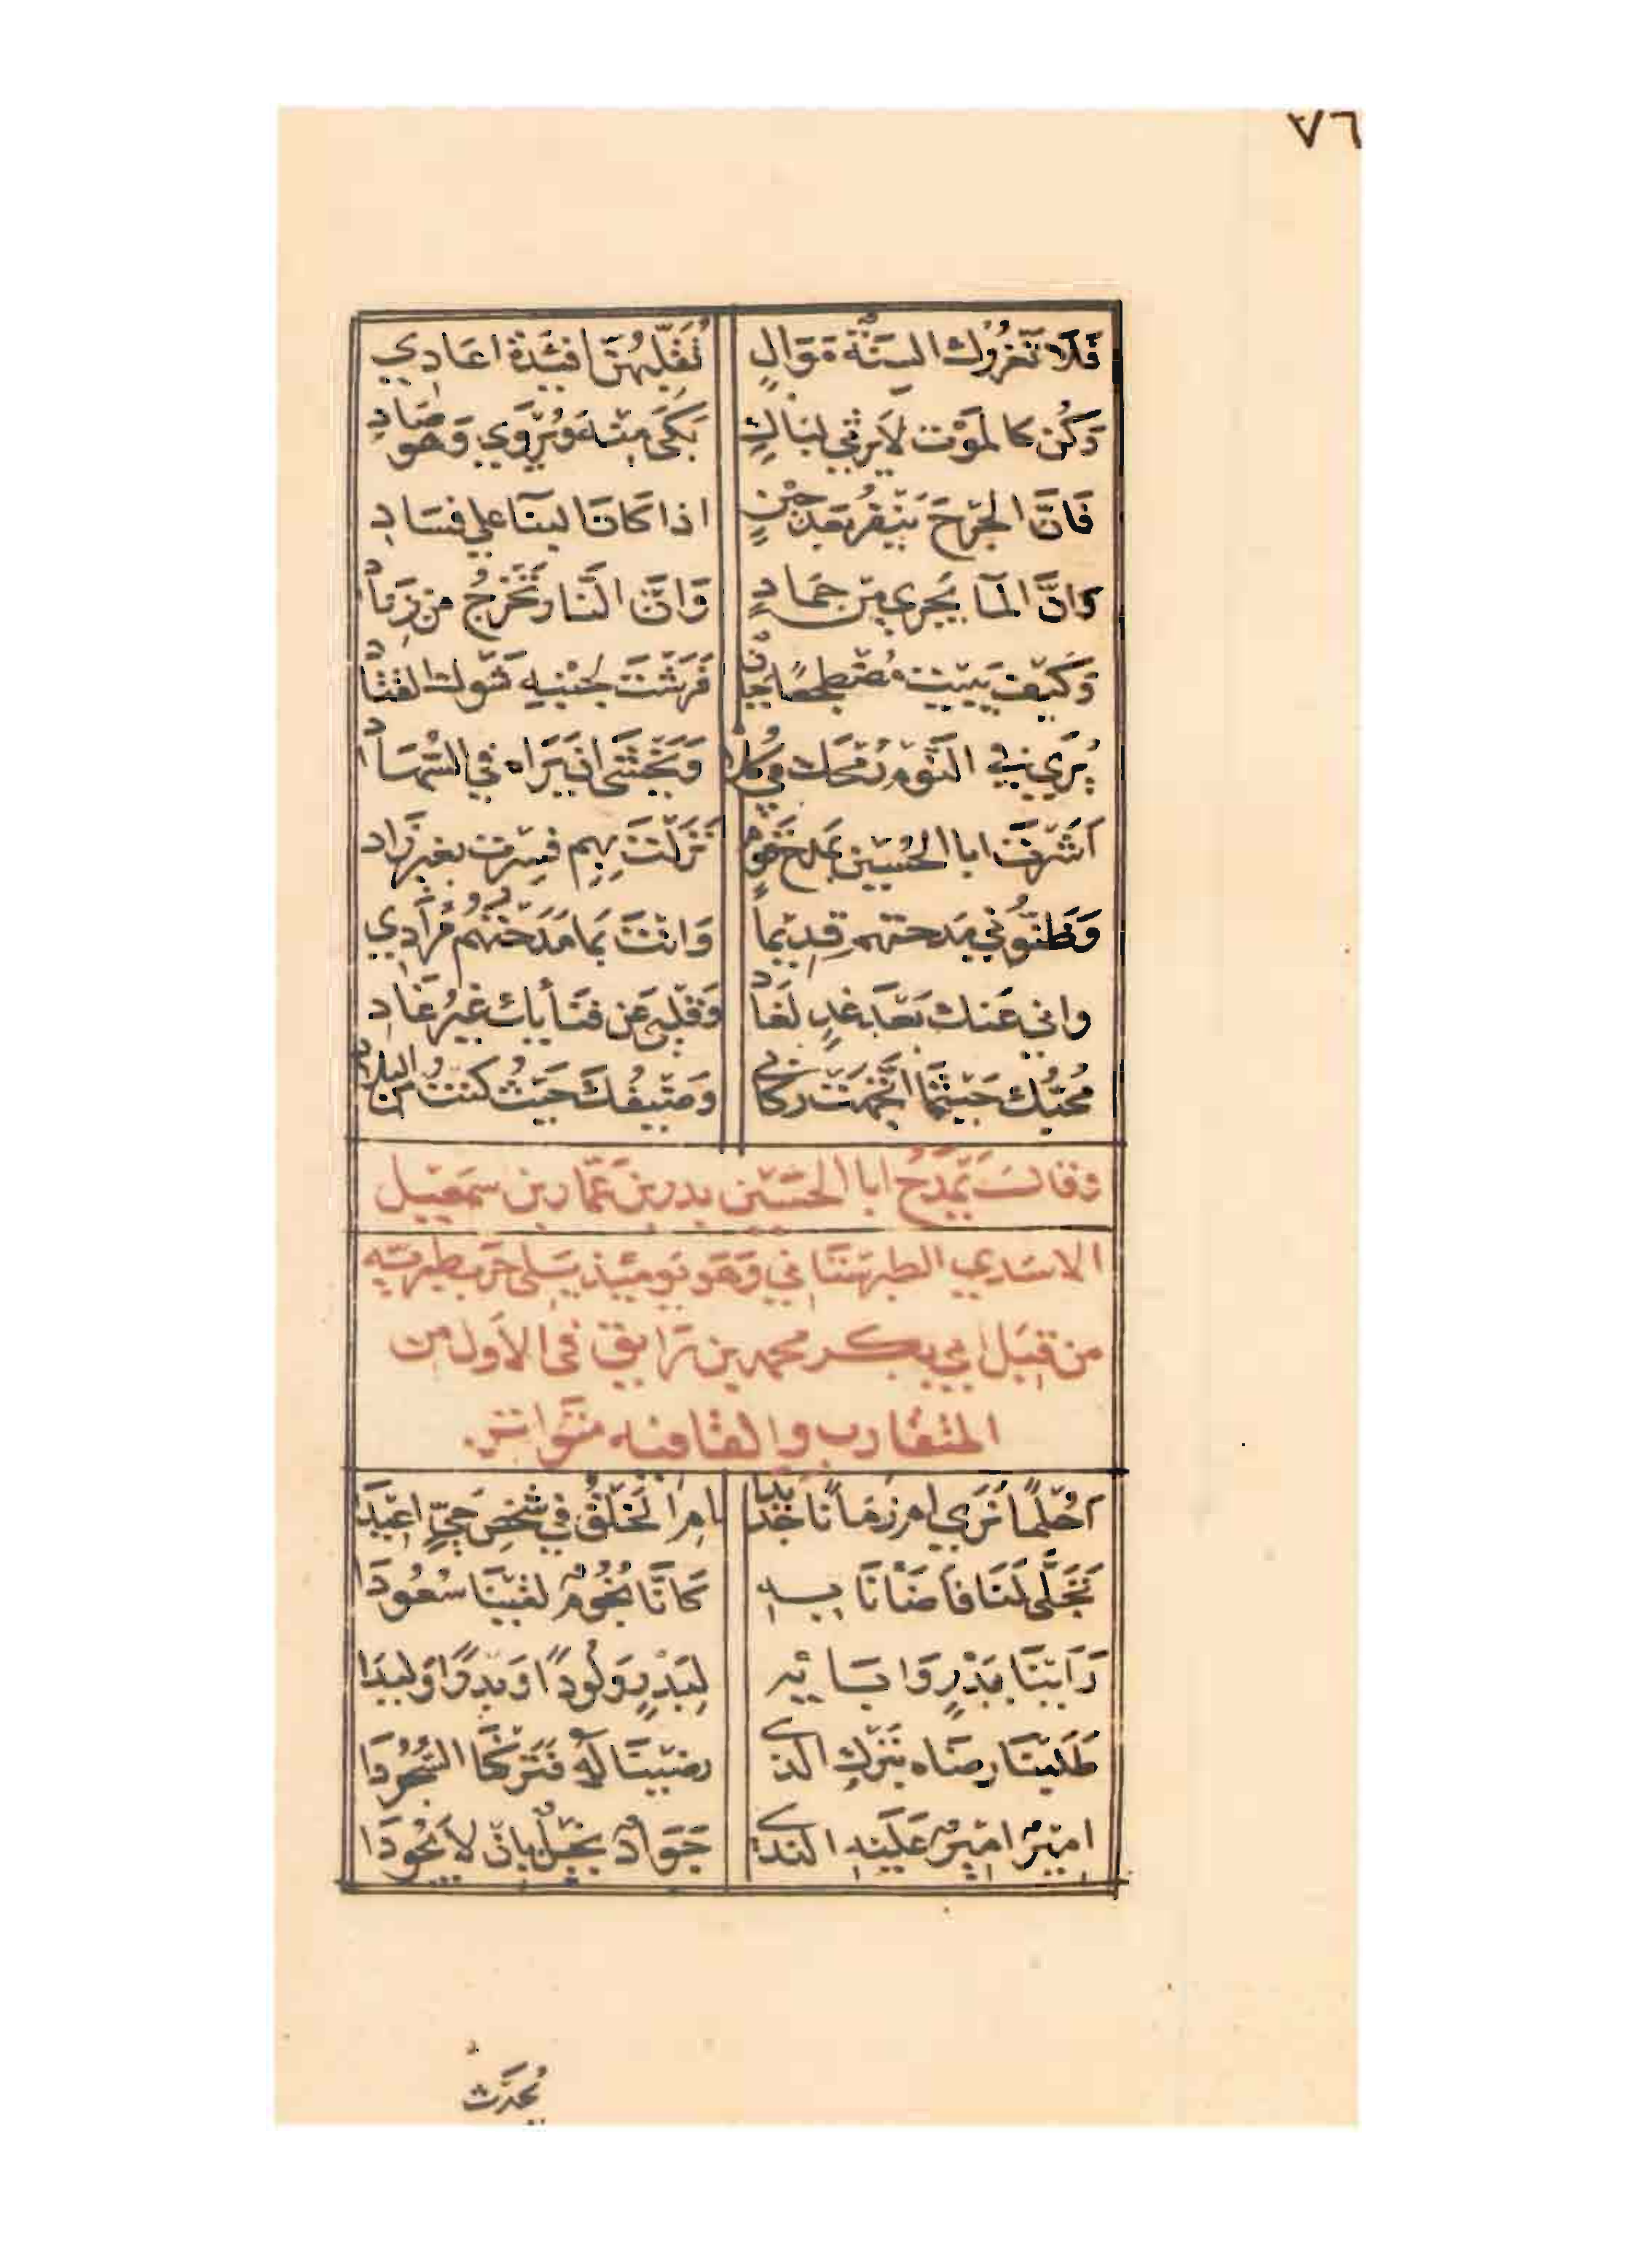 ٧٦
فَلَا تَغْرُرْكَ السِنَةٌ مَوَالٍ تُقَلِّبُهُنَّ افئِدَةٌ اعَادِي
وَكُن كالمَوْت لَا يَرثي لبَاكٍ بَكَى مِنْهُ وَيُرْوَي وَهْوَ صَادِ
فَانَّ الجرْحَ يَنْفِرُ بَعْدَ حِيْنٍ اذا كَانَ البنَا على فَسَادِ
وَانَّ المَآ يَجري مِنْ جَمَادٍ وَانَّ النَّار تَخْرُجُ من زِنَادِ
وَكَيْف يَبيْت مُضْطجعًا جَبانٌ فَرَشْتَ لجَنْبِهِ شَوْكَ القتَادِ
يُرَي في النَّوْم رُمْحَك في كُلاهُ وَيَخْشَى ان يَرَاه في السُّهَادِ
اَشَرْتَ ابا الحُسَيْن بمَدْح قَوْمٍ نَزَلْتُ بِهِم فسِرْت بغير زَاد
وَظَنُّوني مَدحتهم قدِيْماً وَانْتَ بمَا مَدَحْتُهُم مُرَادِي
واني عَنك بَعْدَ غدٍ لَغَادٍ وَقَلْبي عَن فنَأيك غَيْرُ غَادِ
مُحبُّك حَيْثُمَا اتَّجَهَتْ رِكَابي وَضَيْفُكَ حَيْثُ كنتُ من البلَادِ
وَقَالَ يَمْدَحُ ابا الحسَيْن بدر بن عَمّار بن سمعيل
الاسَدي الطبرستَاني وَهَوَ يَومئِذٍ يَلي حَرب طبرَيّه
من قِبَل ابي بكر محمد بن رَايق في الاَول من
المتقارب والقافيه متَواتر.
اَحُلْمًا نَرَي ام زمَانًا جَدِيْدَا ام الخَلْقُ في شخْصِ حَيٍّ اعِيْدَا
تَجَلَّى لَنَا فَاَضَأنَا بِه كَانَّا نُجُوْمٌ لقَيْنَا سُعُودَا
رَاَيْنَا بِبَدْرٍ وَابَائِهِ لِبَدْرٍ وَلُودًا وَبَدْرًا وَلِيدَا
طَلَبْنَا رِضَاه بتَرْكِ الذي رَضيْنَا لَهُ فَتَركْنَا السُّجُوْدَا
امِيْرٌ امِيْرٌ عَلَيْهِ الندَي جَوَادٌ بَخيْلٌ بِانْ لَا يَجُودَا
يُحَدِّث